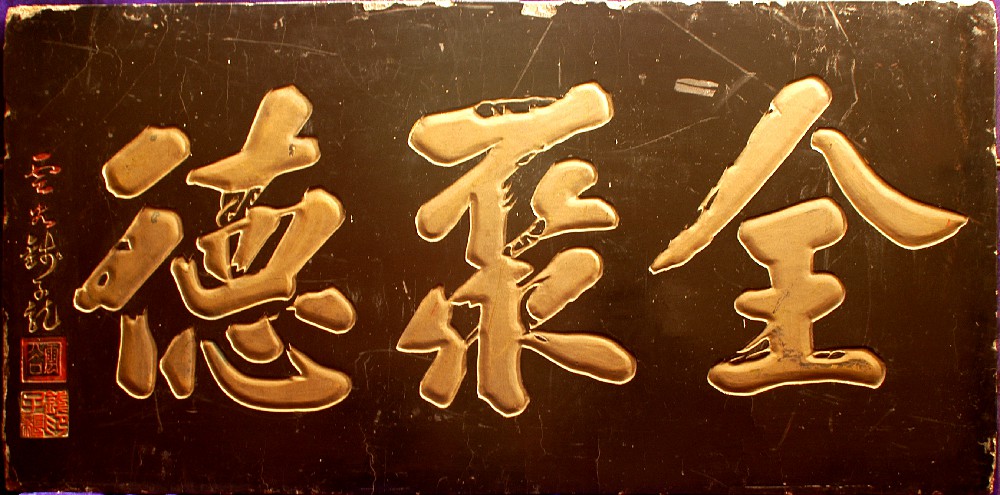 全聚德
錢子龍